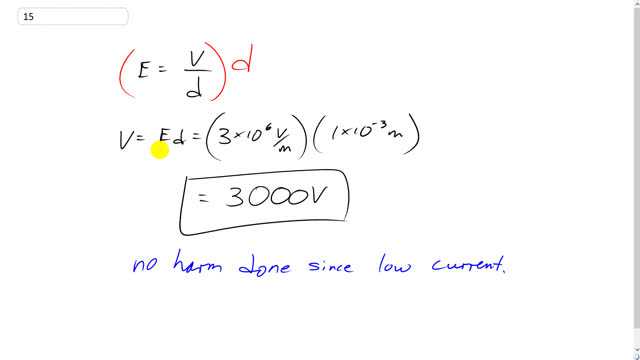 15
(E = V/d) d
V = Ed = (3 × 10⁶ V/m) (1 × 10⁻³ m)
= 3000V
no harm done since low current.